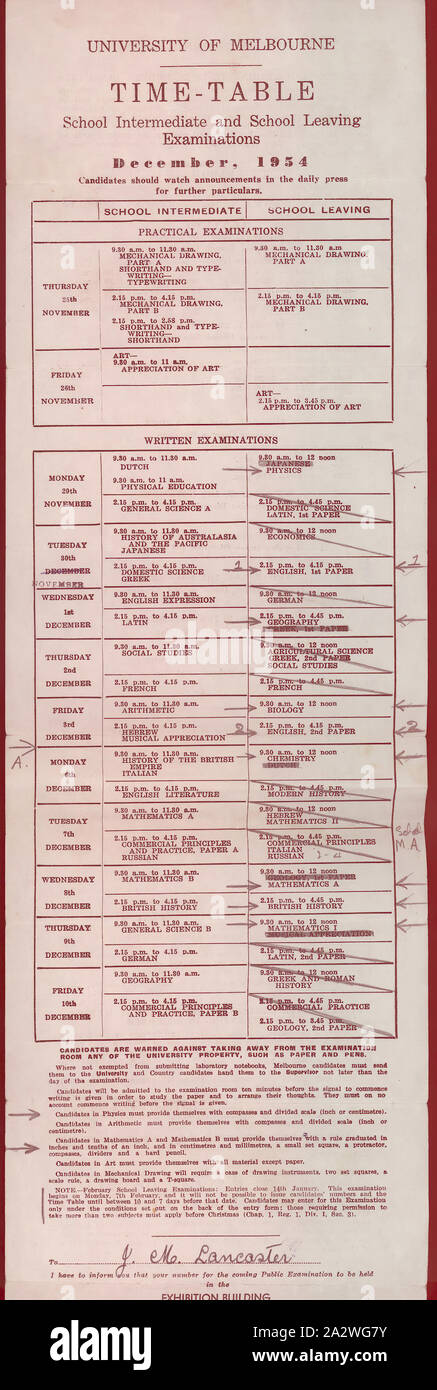 UNIVERSITY OF MELBOURNE
TIME-TABLE
School Intermediate and School Leaving
Examinations
December, 1954
Candidates should watch announcements in the daily press
for further particulars.
SCHOOL INTERMEDIATE
SCHOOL LEAVING
PRACTICAL EXAMINATIONS
THURSDAY
25th
NOVEMBER
9.30 a.m. to 11.30 a.m.
MECHANICAL DRAWING,
PART A
SHORTHAND AND TYPE-
WRITING—
TYPEWRITING
9.30 a.m. to 11.30 a.m
MECHANICAL DRAWING,
PART A
2.15 p.m. to 4.15 p.m.
MECHANICAL DRAWING,
PART B
2.15 p.m. to 2.58 p.m.
SHORTHAND and TYPE-
WRITING—
SHORTHAND
2.15 p.m. to 4.15 p.m.
MECHANICAL DRAWING,
PART B
FRIDAY
26th
NOVEMBER
ART—
9.30 a.m. to 11 a.m.
APPRECIATION OF ART
ART—
2.15 p.m. to 3.45 p.m.
APPRECIATION OF ART
WRITTEN EXAMINATIONS
MONDAY
29th
NOVEMBER
9.30 a.m. to 11.30 a.m.
DUTCH
9.30 a.m. to 11 a.m.
PHYSICAL EDUCATION
9.30 a.m. to 12 noon
JAPANESE
PHYSICS
2.15 p.m. to 4.15 p.m.
GENERAL SCIENCE A
2.15 p.m. to 4.45 p.m.
DOMESTIC SCIENCE
LATIN, 1st PAPER
TUESDAY
30th
DECEMBER
NOVEMBER
9.30 a.m. to 11.30 a.m.
HISTORY OF AUSTRALASIA
AND THE PACIFIC
JAPANESE
9.30 a.m. to 12 noon
ECONOMICS
2.15 p.m. to 4.15 p.m.
DOMESTIC SCIENCE
GREEK
1
2.15 p.m. to 4.15 p.m.
ENGLISH, 1st PAPER
1
WEDNESDAY
1st
DECEMBER
9.30 a.m. to 11.30 a.m.
ENGLISH EXPRESSION
9.30 a.m. to 12 noon
GERMAN
2.15 p.m. to 4.15 p.m.
LATIN
2.15 p.m. to 4.45 p.m.
GEOGRAPHY
GREEK, 1st PAPER
THURSDAY
2nd
DECEMBER
9.30 a.m. to 11.30 a.m.
SOCIAL STUDIES
9.30 a.m. to 12 noon
AGRICULTURAL SCIENCE
GREEK, 2nd PAPER
SOCIAL STUDIES
2.15 p.m. to 4.15 p.m.
FRENCH
2.15 p.m. to 4.45 p.m.
FRENCH
FRIDAY
3rd
DECEMBER
9.30 a.m. to 11.30 a.m.
ARITHMETIC
9.30 a.m. to 12 noon
BIOLOGY
2.15 p.m. to 4.15 p.m.
HEBREW
MUSICAL APPRECIATION
2
2.15 p.m. to 4.15 p.m.
ENGLISH, 2nd PAPER
2
A.
MONDAY
6th
DECEMBER
9.30 a.m. to 11.30 a.m.
HISTORY OF THE BRITISH
EMPIRE
ITALIAN
9.30 a.m. to 12 noon
CHEMISTRY
DUTCH
2.15 p.m. to 4.15 p.m.
ENGLISH LITERATURE
2.15 p.m. to 4.45 p.m.
MODERN HISTORY
TUESDAY
7th
DECEMBER
9.30 a.m. to 11.30 a.m.
MATHEMATICS A
9.30 a.m. to 12 noon
HEBREW
MATHEMATICS II
2.15 p.m. to 4.15 p.m.
COMMERCIAL PRINCIPLES
AND PRACTICE, PAPER A
RUSSIAN
2.15 p.m. to 4.45 p.m.
COMMERCIAL PRINCIPLES
ITALIAN
RUSSIAN
M.A.
WEDNESDAY
8th
DECEMBER
9.30 a.m. to 11.30 a.m.
MATHEMATICS B
9.30 a.m. to 12 noon
GEOLOGY, 1st PAPER
MATHEMATICS A
2.15 p.m. to 4.15 p.m.
BRITISH HISTORY
2.15 p.m. to 4.45 p.m.
BRITISH HISTORY
THURSDAY
9th
DECEMBER
9.30 a.m. to 11.30 a.m.
GENERAL SCIENCE B
9.30 a.m. to 12 noon
MATHEMATICS I
MUSICAL APPRECIATION
2.15 p.m. to 4.15 p.m.
GERMAN
2.15 p.m. to 4.45 p.m.
LATIN, 2nd PAPER
FRIDAY
10th
DECEMBER
9.30 a.m. to 11.30 a.m.
GEOGRAPHY
9.30 a.m. to 12 noon
GREEK AND ROMAN
HISTORY
2.15 p.m. to 4.15 p.m.
COMMERCIAL PRINCIPLES
AND PRACTICE, PAPER B
2.15 p.m. to 4.45 p.m.
COMMERCIAL PRACTICE
2.15 p.m. to 3.45 p.m.
GEOLOGY, 2nd PAPER
CANDIDATES ARE WARNED AGAINST TAKING AWAY FROM THE EXAMINATION
ROOM ANY OF THE UNIVERSITY PROPERTY, SUCH AS PAPER AND PENS.
Where not exempted from submitting laboratory notebooks, Melbourne candidates must send
them to the University and Country candidates must hand them to the Supervisor not later than the
day of the examination.
Candidates will be admitted to the examination room ten minutes before the signal to commence
writing is given in order to study the paper and to arrange their thoughts. They must on no
account commence writing before the signal is given.
Candidates in Physics must provide themselves with compasses and divided scale (inch or centimetre).
Candidates in Arithmetic must provide themselves with compasses and divided scale (inch or
centimetre).
Candidates in Mathematics A and Mathematics B must provide themselves with a rule graduated in
inches and tenths of an inch, and in centimetres and millimetres, a small set square, a protractor,
compasses, dividers and a hard pencil.
Candidates in Art must provide themselves with all material except paper.
Candidates in Mechanical Drawing will require a case of drawing instruments, two set squares, a
scale rule, a drawing board and a T-square.
NOTE.—February School Leaving Examinations: Entries close 14th January. This examination
begins on Monday, 7th February, and it will not be possible to issue candidates' numbers and the
Time Table until between 10 and 7 days before that date. Candidates may enter for this Examination
only under the conditions set out on the back of the entry form; those requiring permission to
take more than two subjects must apply before Christmas (Chap. 1, Reg. 1, Div. I, Sec. 3).
To J. M. Lancaster
I have to inform you that your number for the coming Public Examination to be held
in the
EXHIBITION BUILDING
alamy
Image ID: 2A2WG7Y
www.alamy.com